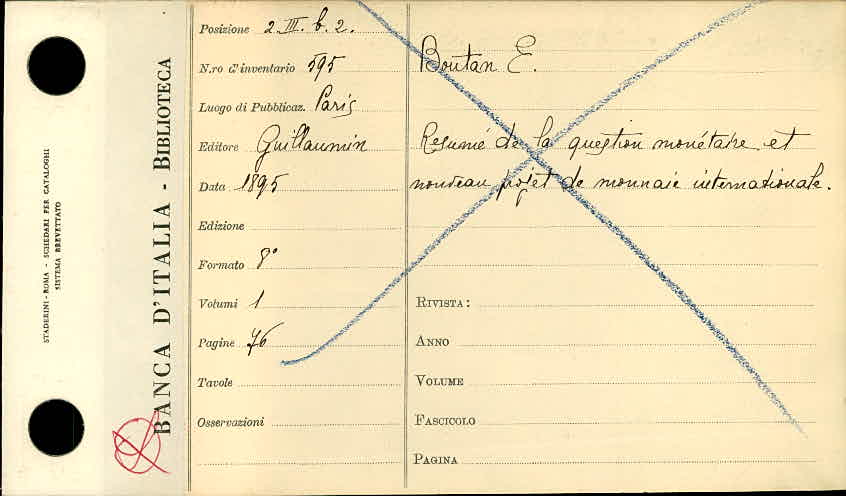 STADERINI - ROMA - SCHEDARI PER CATALOGHI
SISTEMA BREVETTATO
BANCA D'ITALIA - BIBLIOTECA
Posizione 2. III. b. 2.
N.ro d'inventario 595
Luogo di Pubblicaz. Paris
Editore Guillaumin
Data 1895
Edizione
Formato 8°
Volumi 1
Pagine 76
Tavole
Osservazioni
Boutan E.
Resumé de la question monétaire et
nouveau projet de monnaie internationale.
RIVISTA:
ANNO
VOLUME
FASCICOLO
PAGINA